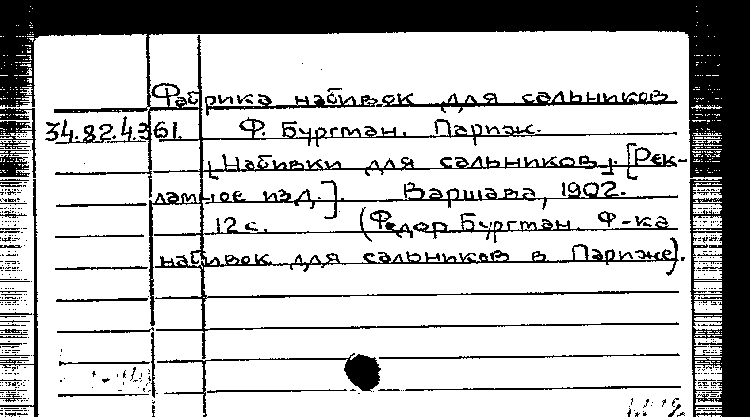 Фабрика набивок для сальников
34.82.4.361. Ф. Бургман. Париж.
[Набивки для сальников]. [Рек-
ламное изд.]. Варшава, 1902.
12 с. (Федор Бургман. Ф-ка
набивок для сальников в Париже).